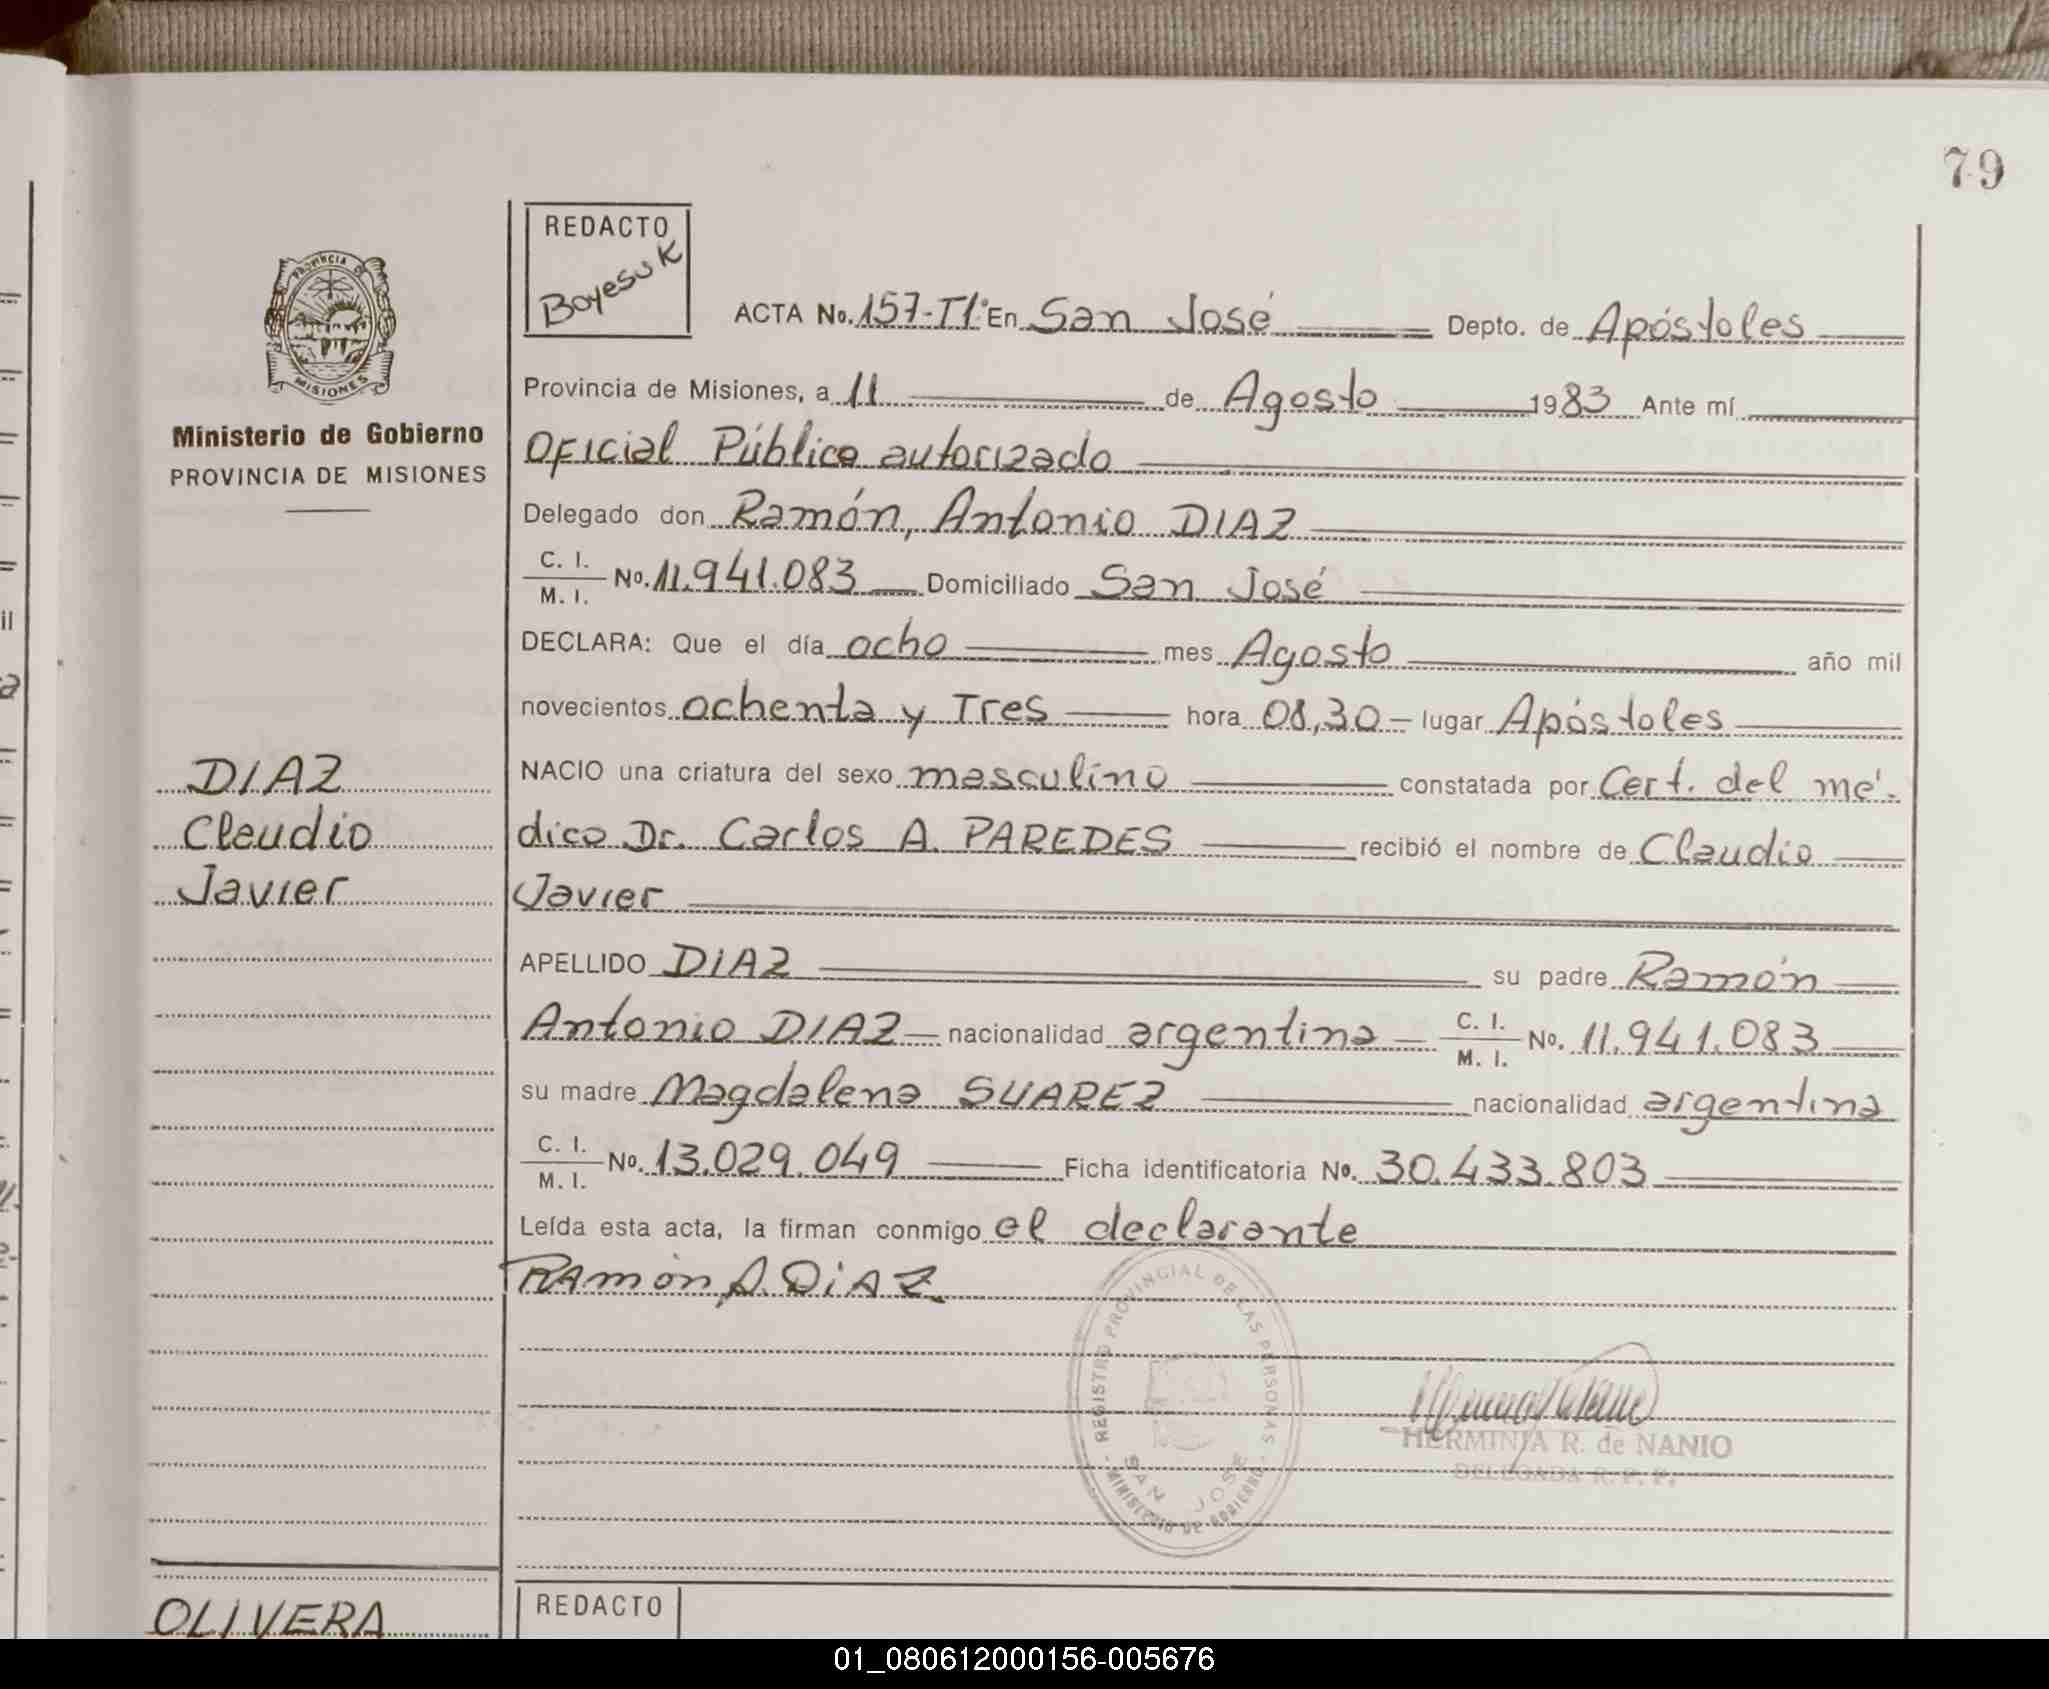 79
PROVINCIA DE
MISIONES
Ministerio de Gobierno
PROVINCIA DE MISIONES
REDACTO
Boyesuk
ACTA No. 157-T1º En San José Depto. de Apóstoles
Provincia de Misiones, a 11 de Agosto 1983 Ante mí
Oficial Público autorizado
Delegado don Ramón, Antonio DIAZ
C. I.
M. I. No. 11.941.083 Domiciliado San José
DECLARA: Que el día ocho mes Agosto año mil
novecientos ochenta y Tres hora 08,30 – lugar Apóstoles
DIAZ
Claudio
Javier
NACIO una criatura del sexo masculino constatada por Cert. del mé-
dico Dr. Carlos A. PAREDES recibió el nombre de Claudio
Javier
APELLIDO DIAZ su padre Ramón
Antonio DIAZ – nacionalidad argentina – C. I.
M. I. No. 11.941.083
su madre Magdalena SUAREZ nacionalidad argentina
C. I.
M. I. No. 13.029.049 Ficha identificatoria No. 30.433.803
Leída esta acta, la firman conmigo el declarante
Ramón A. DiAZ
REGISTRO PROVINCIAL DE LAS PERSONAS
SAN JOSE
MINISTERIO DE GOBIERNO
HERMINIA R. de NANIO
DELEGADA R. P. P.
OLIVERA
REDACTO
01_080612000156-005676